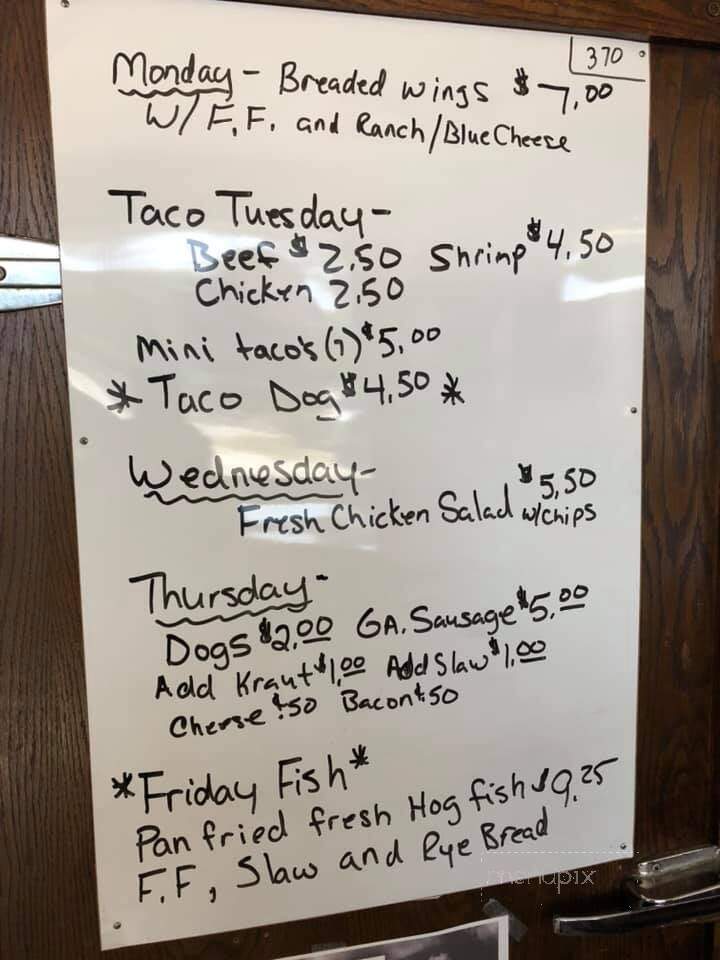 370
Monday - Breaded wings $7.00
W/ F.F. and Ranch/Blue Cheese
Taco Tuesday -
Beef $2.50 Shrimp $4.50
Chicken 2.50
Mini taco's (7) $5.00
* Taco Dog $4.50 *
Wednesday -
Fresh Chicken Salad $5.50
w/chips
Thursday -
Dogs $2.00 GA. Sausage $5.00
Add Kraut $1.00 Add Slaw $1.00
Cheese $.50 Bacon $.50
*Friday Fish*
Pan fried fresh Hog fish $9.25
F.F, Slaw and Rye Bread
menupix